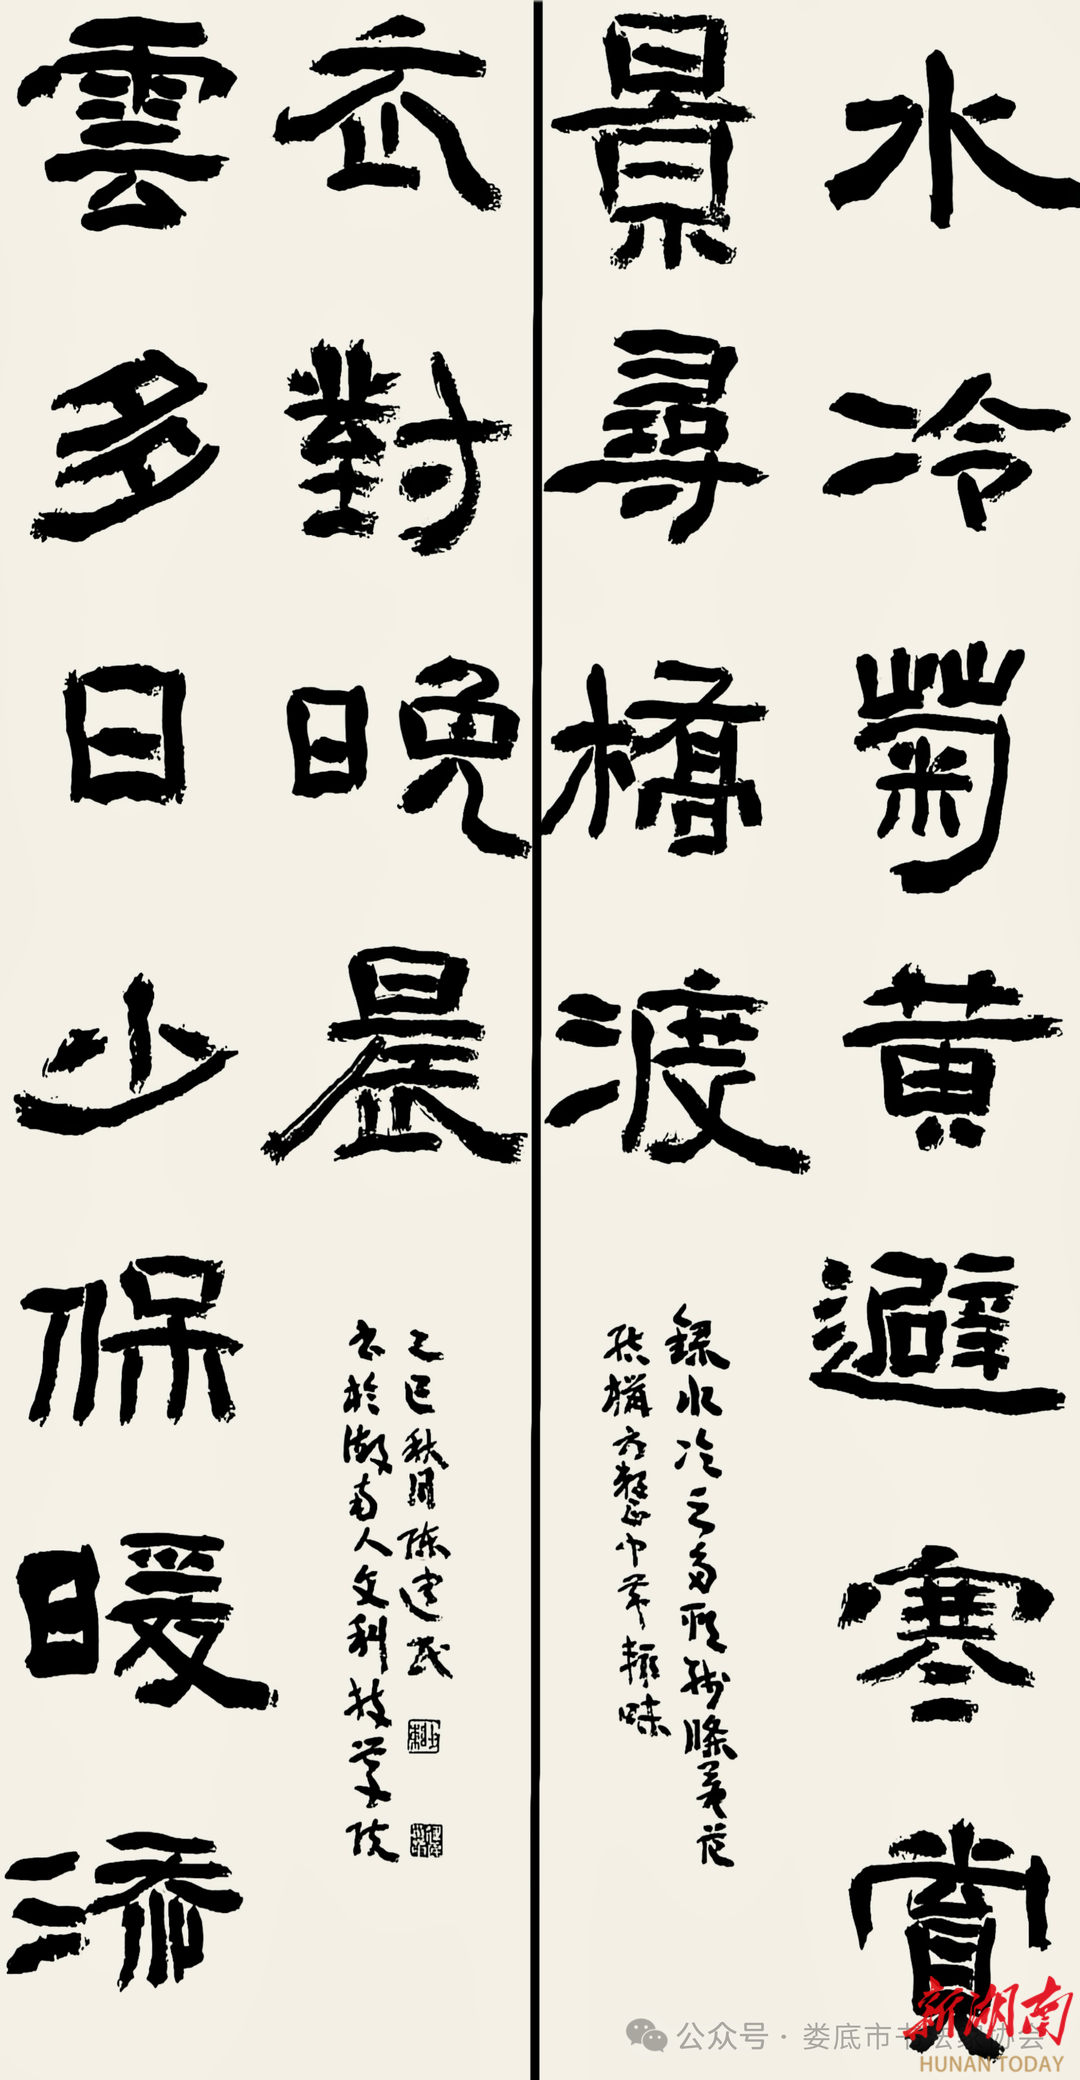 水冷菊黄避寒賞
景尋橋渡
録水冷云多
雲多日少保暖添
衣對晚晨
乙巳秋月陳建武
书於湖南人文科技学院
公众号·娄底市书法家协会
新湖南
HUNAN TODAY